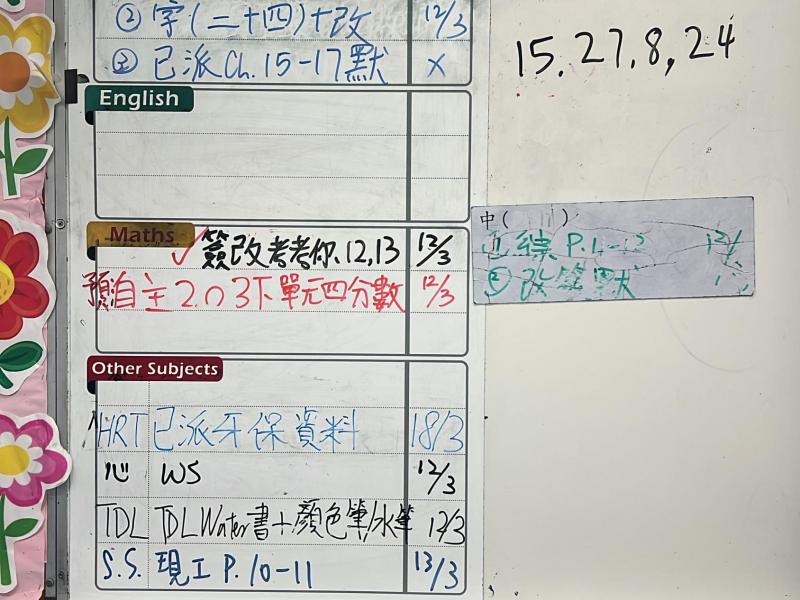 ② 字(二十四)+改 12/3
③ 已派Ch.15-17默 x
15. 27, 8, 24
English
Maths
簽改考考你12,13 12/3
預自主2.03下單元四分數 12/3
中( )
P.
② 改 默
Other Subjects
HRT 已派牙保資料 18/3
心 WS 12/3
TDL TDL Water書+顏色筆/水筆 12/3
S.S. 現工 P.10-11 13/3